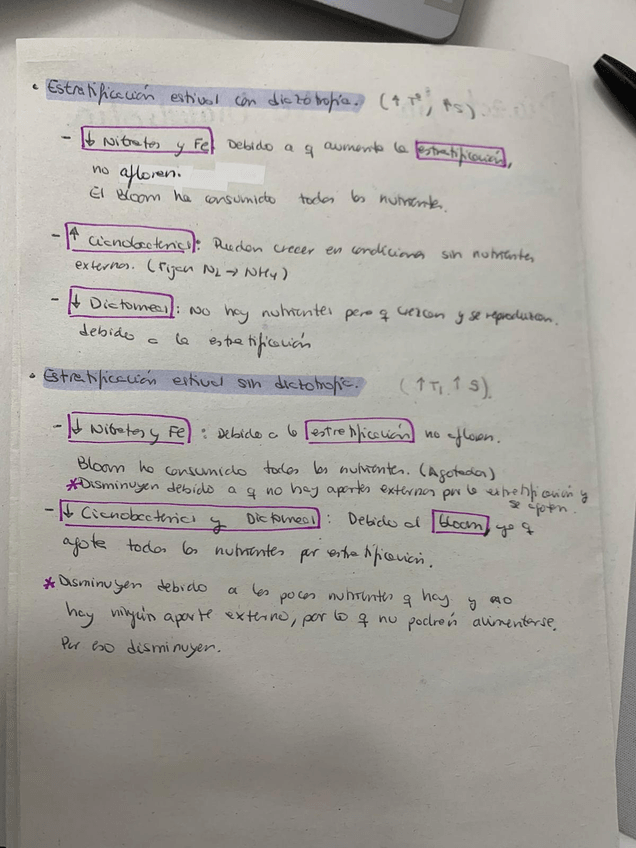 • Estratificación estival con diazotrofia. (↑ Tª, ↑S).
- ↓ Nitratos y Fe Debido a q aumenta la estratificación,
no afloran.
El Bloom ha consumido todos los nutrientes.
- ↑ Cianobacterias: Pueden crecer en condiciones sin nutrientes
externos. (Fijan N2 → NH4)
- ↓ Diatomeas: No hay nutrientes para q crezcan y se reproduzcan.
debido a la estratificación
• Estratificación estival sin diazotrofia. (↑T, ↑ S).
- ↓ Nitratos y Fe : Debido a la estratificación no afloran.
Bloom ha consumido todos los nutrientes. (Agotados)
*Disminuyen debido a q no hay aportes externos por la estratificación y
se agotan.
- ↓ Cianobacterias y Diatomeas : Debido al bloom, ya q
agota todos los nutrientes por estratificación.
* Disminuyen debido a los pocos nutrientes q hay y no
hay ningún aporte externo, por lo q no podrán alimentarse.
Por eso disminuyen.